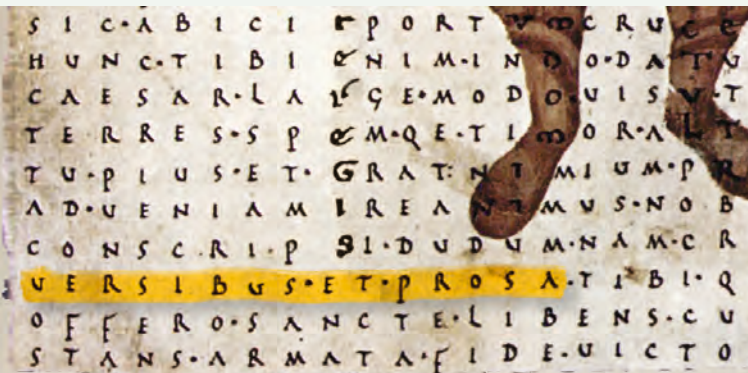 SIC·ABICI ERPORTUMCRUCE
HUNC·TIBI ENIM·INDO·DATU
CAESAR·LARGE·MODO·UISU·T
TERRES·SPEM·QE·TIMOR·ALT
TU·PIUS·ET·GRATNTMIUM·PR
AD·UENIAM IREANIMUS·NOB
CONSCRIPSI·DUDUM·NAM·CR
UERSIBUS·ET·PROSA·TIBI·Q
OFFERO·SANCTE·LIBENS·CU
STANS·ARMATA·FIDE·UICTO